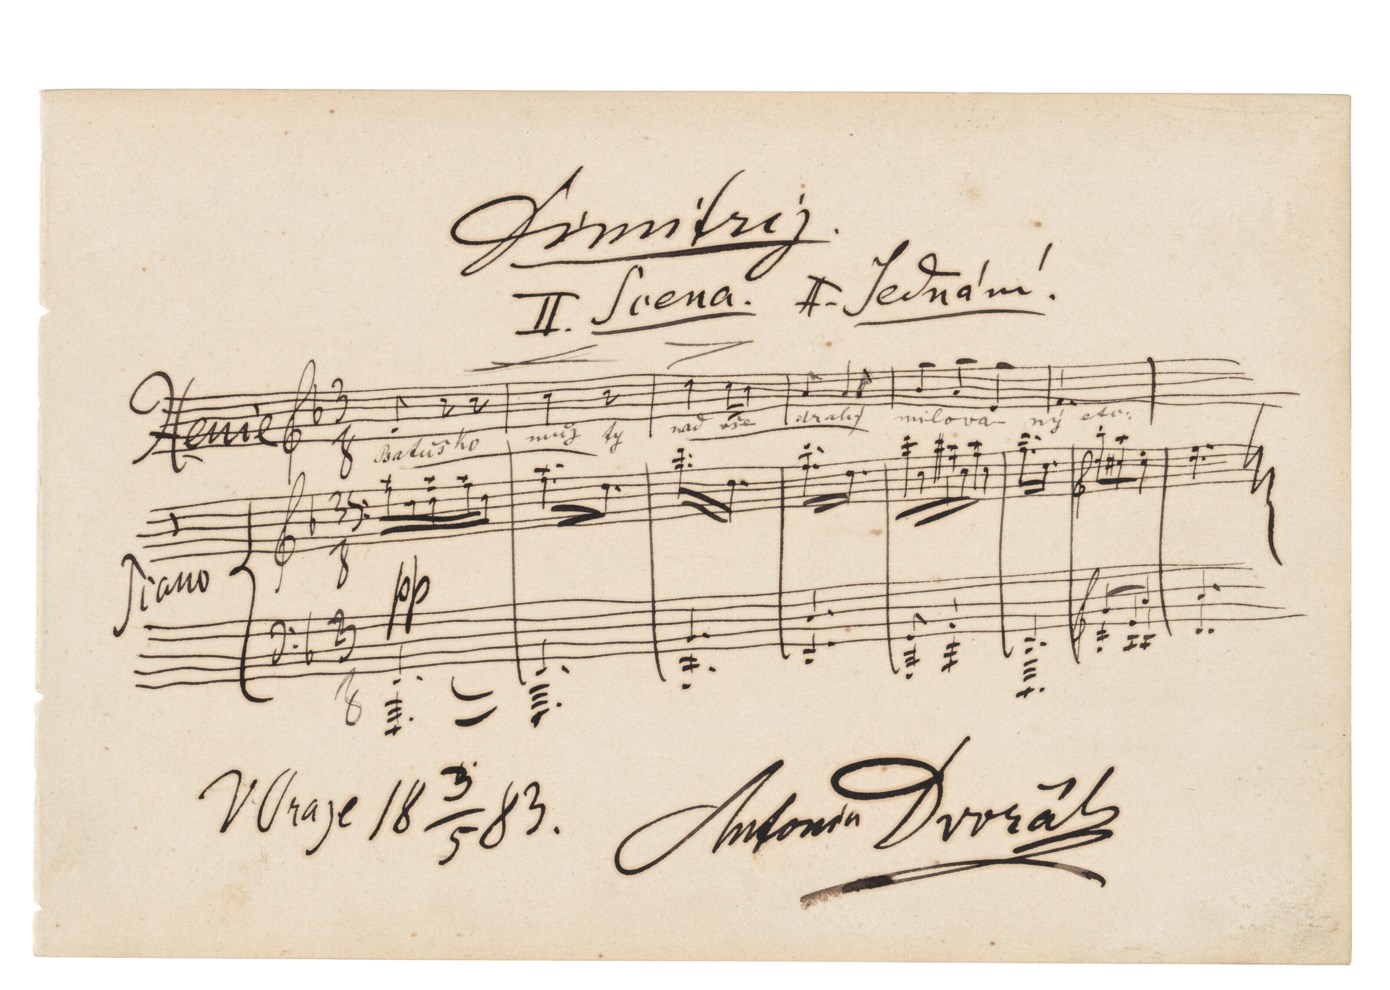 Dimitrij.
II. Scena. II. Jednání.
Xenie
Batuško muž ty nad vše drahý milova- ný etc:
Piano
pp
V Praze 18 3/5 83.
Antonín Dvořák